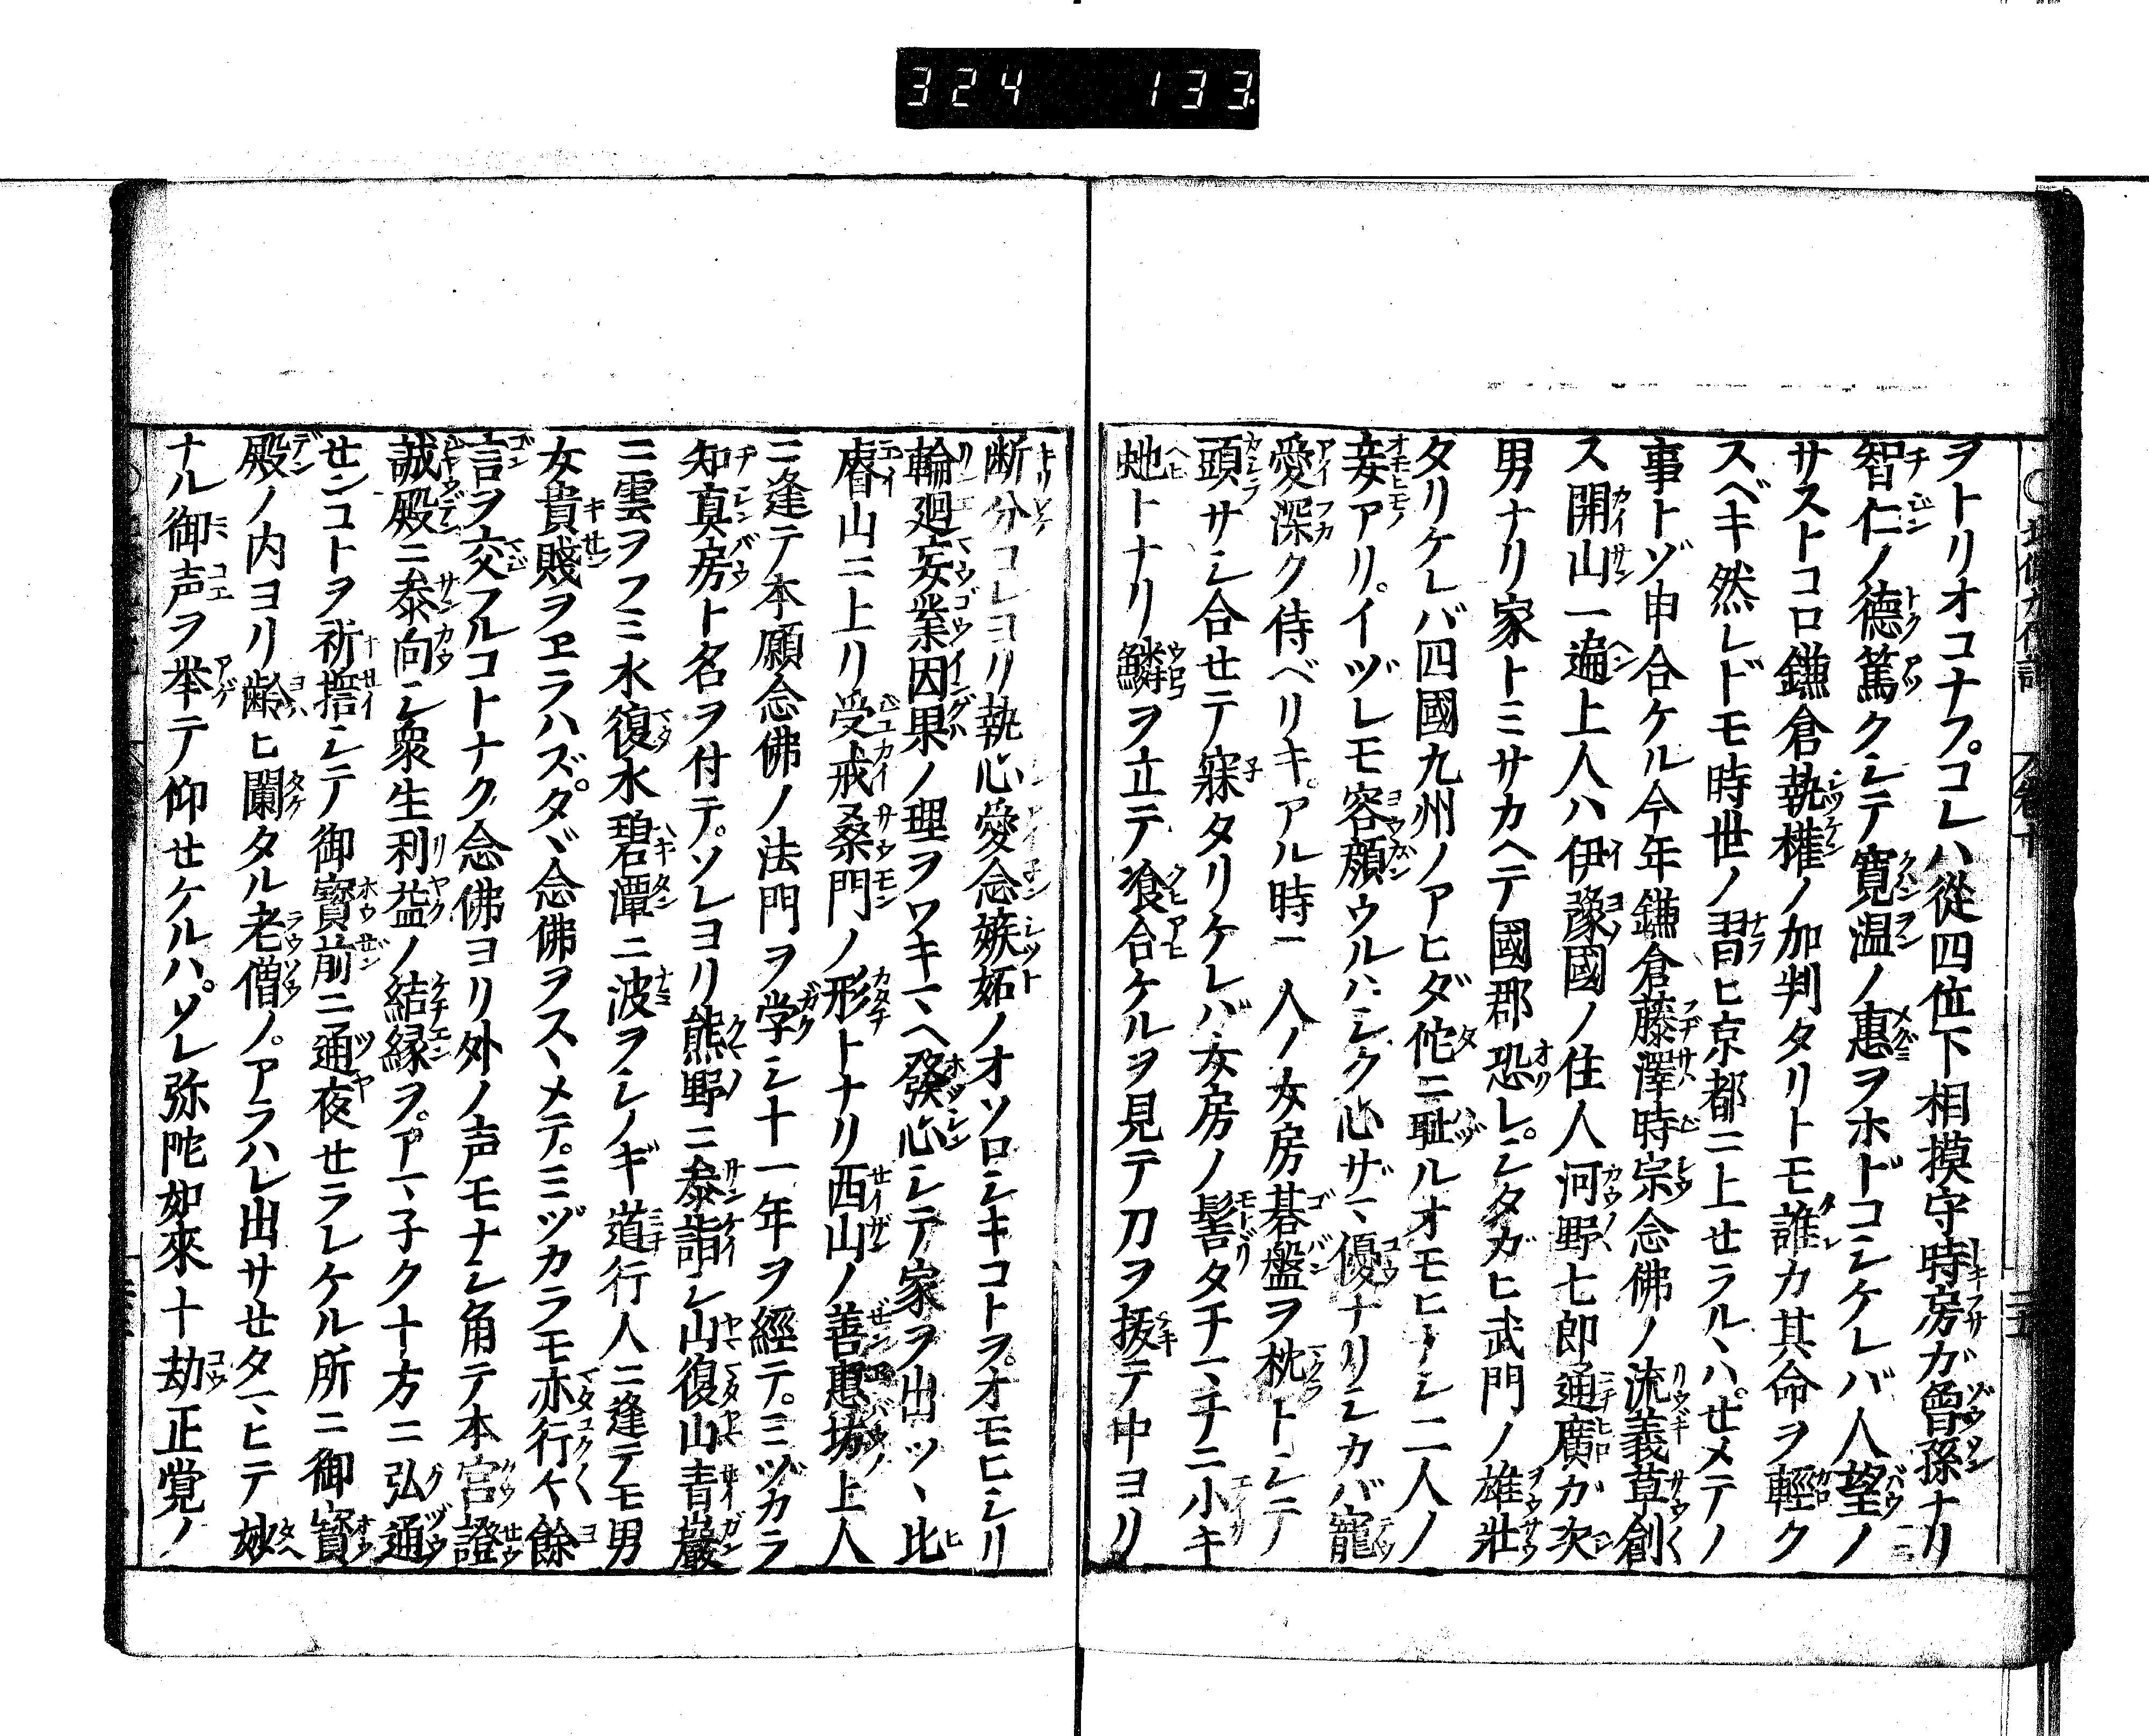 324 133
ヲトリオコナフ。コレハ從四位下相摸守時房ガ曾孫ナリ
智仁ノ德篤クシテ寛温ノ惠ヲホドコシケレバ人望ノ
サストコロ鎌倉執權ノ加判タリトモ誰カ其命ヲ輕ク
スベキ然レドモ時世ノ習ヒ京都ニ上セラルヽハ。せメテノ
事トゾ申合ケル今年鎌倉藤澤時宗念佛ノ流義草創
ス開山一遍上人ハ伊豫國ノ住人河野七郎通廣ガ次
男ナリ家トミサカヘテ國郡恐レ。シタガヒ武門ノ雄壯
タリケレバ四國九州ノアヒダ佗ニ耻ルオモヒナシ二人ノ
妾アリ。イヅレモ容顔ウルハシク心ザマ優ナリシカバ寵
愛深ク侍ベリキ。アル時二人ノ女房碁盤ヲ枕トシテ
頭サシ合せテ寐タリケレバ女房ノ髻タチマチニ小キ
虵トナリ鱗ヲ立テ喰合ケルヲ見テ刀ヲ抜テ中ヨリ
断分コレヨリ執心愛念嫉妬ノオソロシキコトヲ。オモヒシリ
輪廻妄業因果ノ理ヲワキマヘ發心シテ家ヲ出ツヽ比
睿山ニ上リ受戒桑門ノ形トナリ西山ノ善惠坊上人
ニ逢テ本願念佛ノ法門ヲ学シ十一年ヲ經テ。ミヅカラ
知真房ト名ヲ付テ。ソレヨリ熊野ニ叅詣シ山復山青巖
ニ雲ヲフミ水復水碧潭ニ波ヲシノギ道行人ニ逢テモ男
女貴賤ヲヱラハズ。タヾ念佛ヲスヽメテ。ミヅカラモ亦行〻餘
言ヲ交フルコトナク念佛ヨリ外ノ声モナシ角テ本宮證
誠殿ニ叅向シ衆生利益ノ結縁ヲ。アマ子ク十方ニ弘通
せンコトヲ祈誓シテ御寳前ニ通夜せラレケル所ニ御寳
殿ノ内ヨリ齢ヒ闌タル老僧ノ。アラハレ出サせタマヒテ妙
ナル御声ヲ举テ仰せケルハ。ソレ弥陀如來十劫正覚ノ